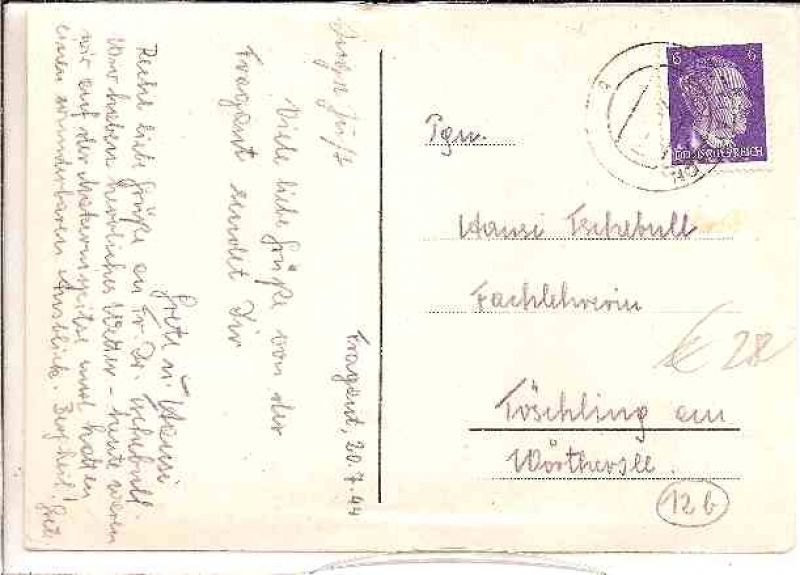 Fragant, 20.7.44
Viele liebe Grüße von der
Fragant sendet Dir
Grete u. Hansi
Recht liebe Grüße an Fr. Dr. Tschebull.
Wir haben herrliches Wetter - heute waren
wir auf der Makernispitze und hatten
einen wunderbaren Ausblick. Berg heil!
6 6
DEUTSCHES REICH
Pgn.
Hansi Tschebull
Fachlehrerin
Töschling am
Wörthersee.
12b
€ 28